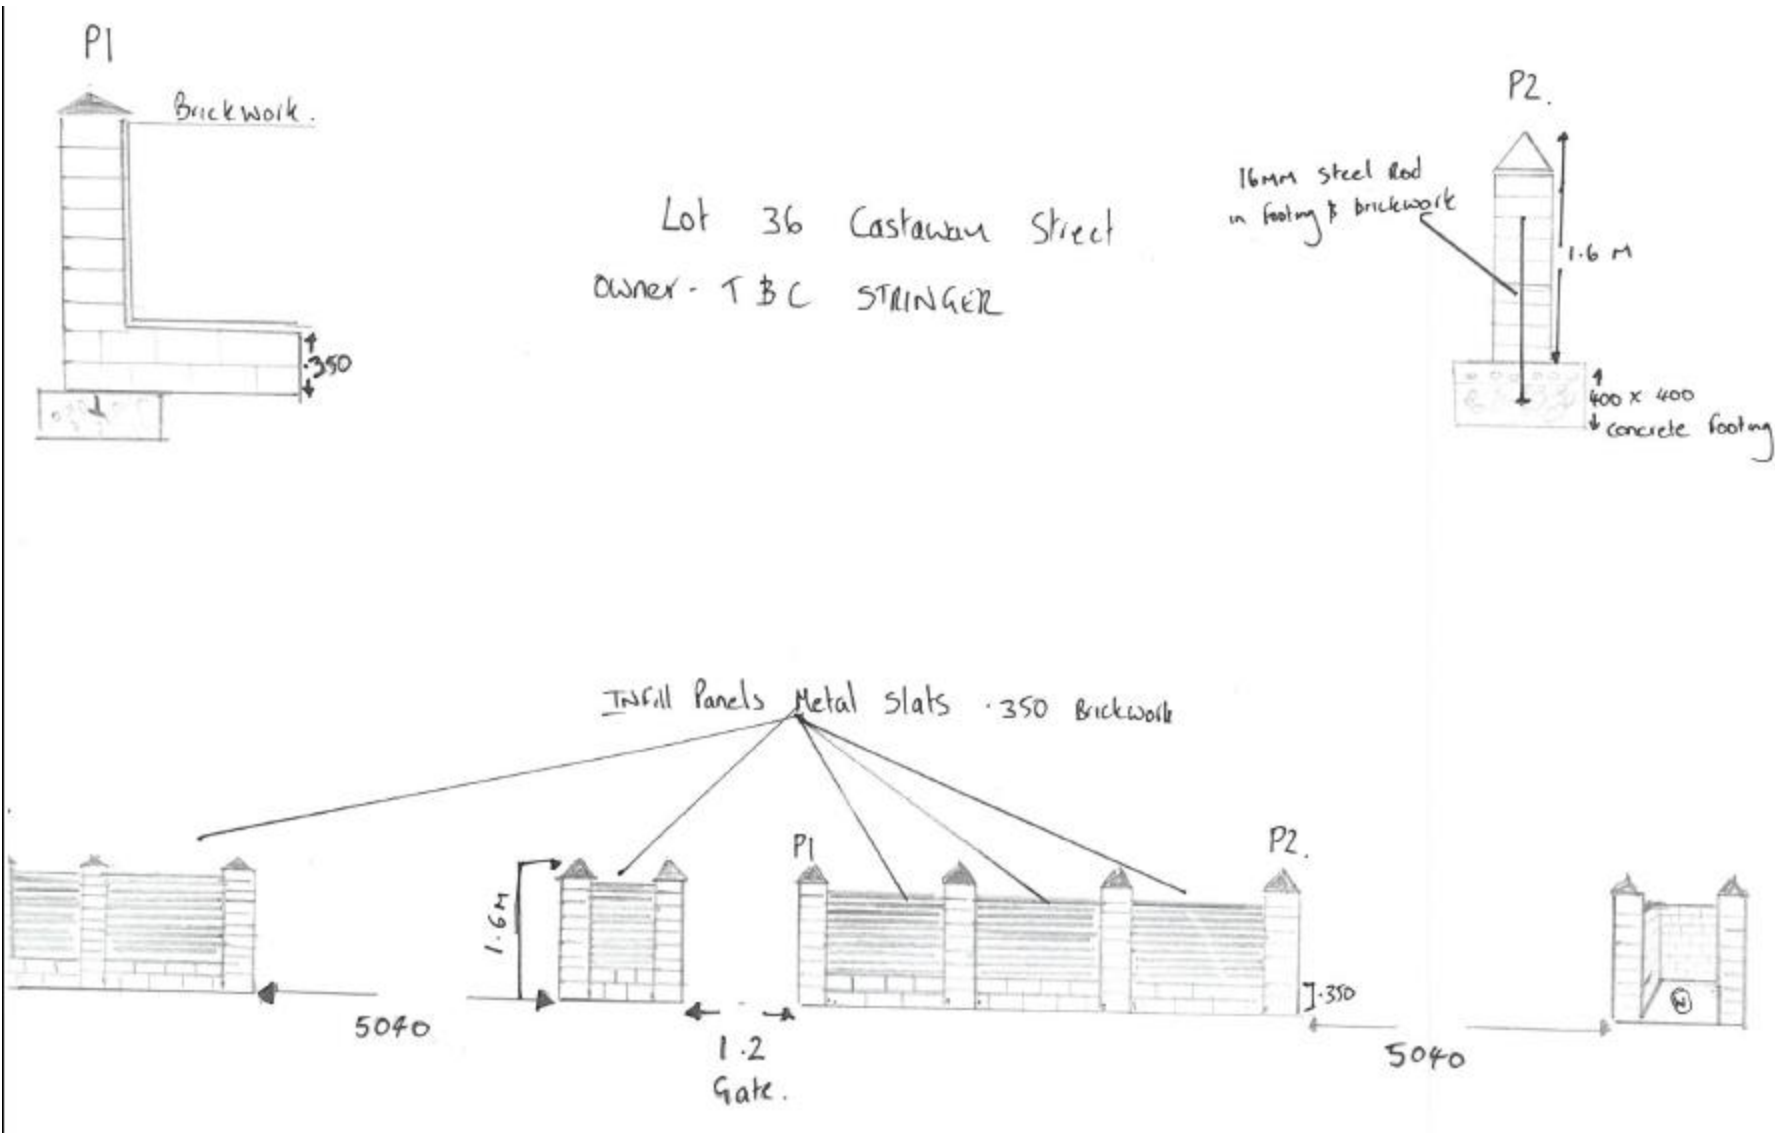 P1
Brickwork.
.350
Lot 36 Castaway Street
Owner - T & C STRINGER
P2.
16mm Steel Rod
in footing & brickwork
1.6 M
400 x 400
concrete footing
Infill Panels Metal Slats .350 Brickwork
1.6M
P1
P2.
.350
5040
1.2
Gate.
5040